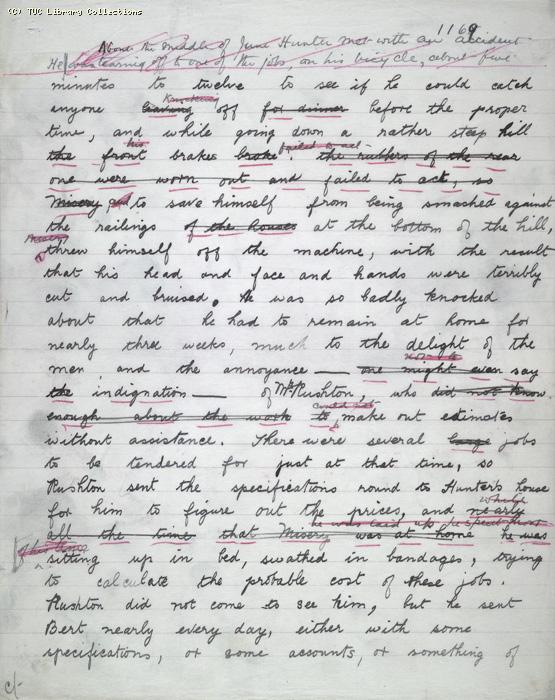 (C) TUC Library Collections
1169
About the middle of June Hunter met with an accident
He was tearing off to one of the jobs, on his bicycle, about five
minutes to twelve to see if he could catch
Knocking
anyone leaving off for dinner before the proper
time, and while going down a rather steep hill
his failed to act
the front brakes broke. the rubbers of the rear
one were worn out and failed to act, so
Misery to save himself from being smashed against
the railings of the houses at the bottom of the hill,
Misery
threw himself off the machine, with the result
that his head and face and hands were terribly
cut and bruised. He was so badly knocked
about that he had to remain at home for
nearly three weeks, much to the delight of the
men, and the annoyance — one might even say
the indignation — of Mr Rushton, who did not know
could not
enough about the work to make out estimates
without assistance. There were several large jobs
to be tendered for just at that time, so
Rushton sent the specifications round to Hunter's house
for him to figure out the prices, and nearly
while
he was laid up he spent most
all the time that Misery was at home he was
sitting up in bed, swathed in bandages, trying
to calculate the probable cost of these jobs.
Rushton did not come to see him, but he sent
Bert nearly every day, either with some
specifications, or some accounts, or something of
c/-